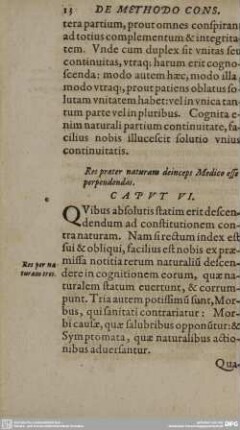 13 DE METHODO CONS.
tera partium, prout omnes conspirant
ad totius complementum & integrita
tem. Vnde cum duplex sit vnitas seu
continuitas, vtraq; harum erit cogno-
scenda: modo autem hæc, modo illa,
modo vtraq;, prout patiens oblatus so-
lutam vnitatem habet: vel in vnica tan-
tum parte vel in pluribus. Cognita e-
nim naturali partium continuitate, fa-
cilius nobis illucescit solutio vnius
continuitatis.
Res præter naturam deinceps Medico esse
perpendendas.
CAPVT VI.
QVibus absolutis statim erit descen-
dendum ad constitutionem con-
tra naturam. Nam si rectum index est
sui & obliqui, facilius est nobis ex præ-
missa notitia rerum naturaliū descen-
Res per na
turam tres.
dere in cognitionem eorum, quæ na-
turalem statum euertunt, & corrum-
punt. Tria autem potissimū sunt, Mor-
bus, qui sanitati contrariatur: Mor-
bi causæ, quæ salubribus opponūtur: &
Symptomata, quæ naturalibus actio-
nibus aduersantur.
Qua-